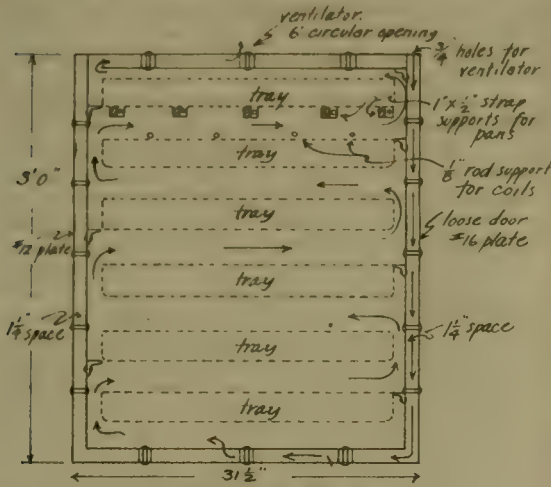 ventilator.
6" circular opening
3/4" holes for
ventilator
tray
1" x 1/2" strap
supports for
pans
tray
1/8" rod support
for coils
3'0"
tray
loose door
#16 plate
#12 plate
tray
1 1/4" space
1 1/4" space
tray
tray
31 1/2"